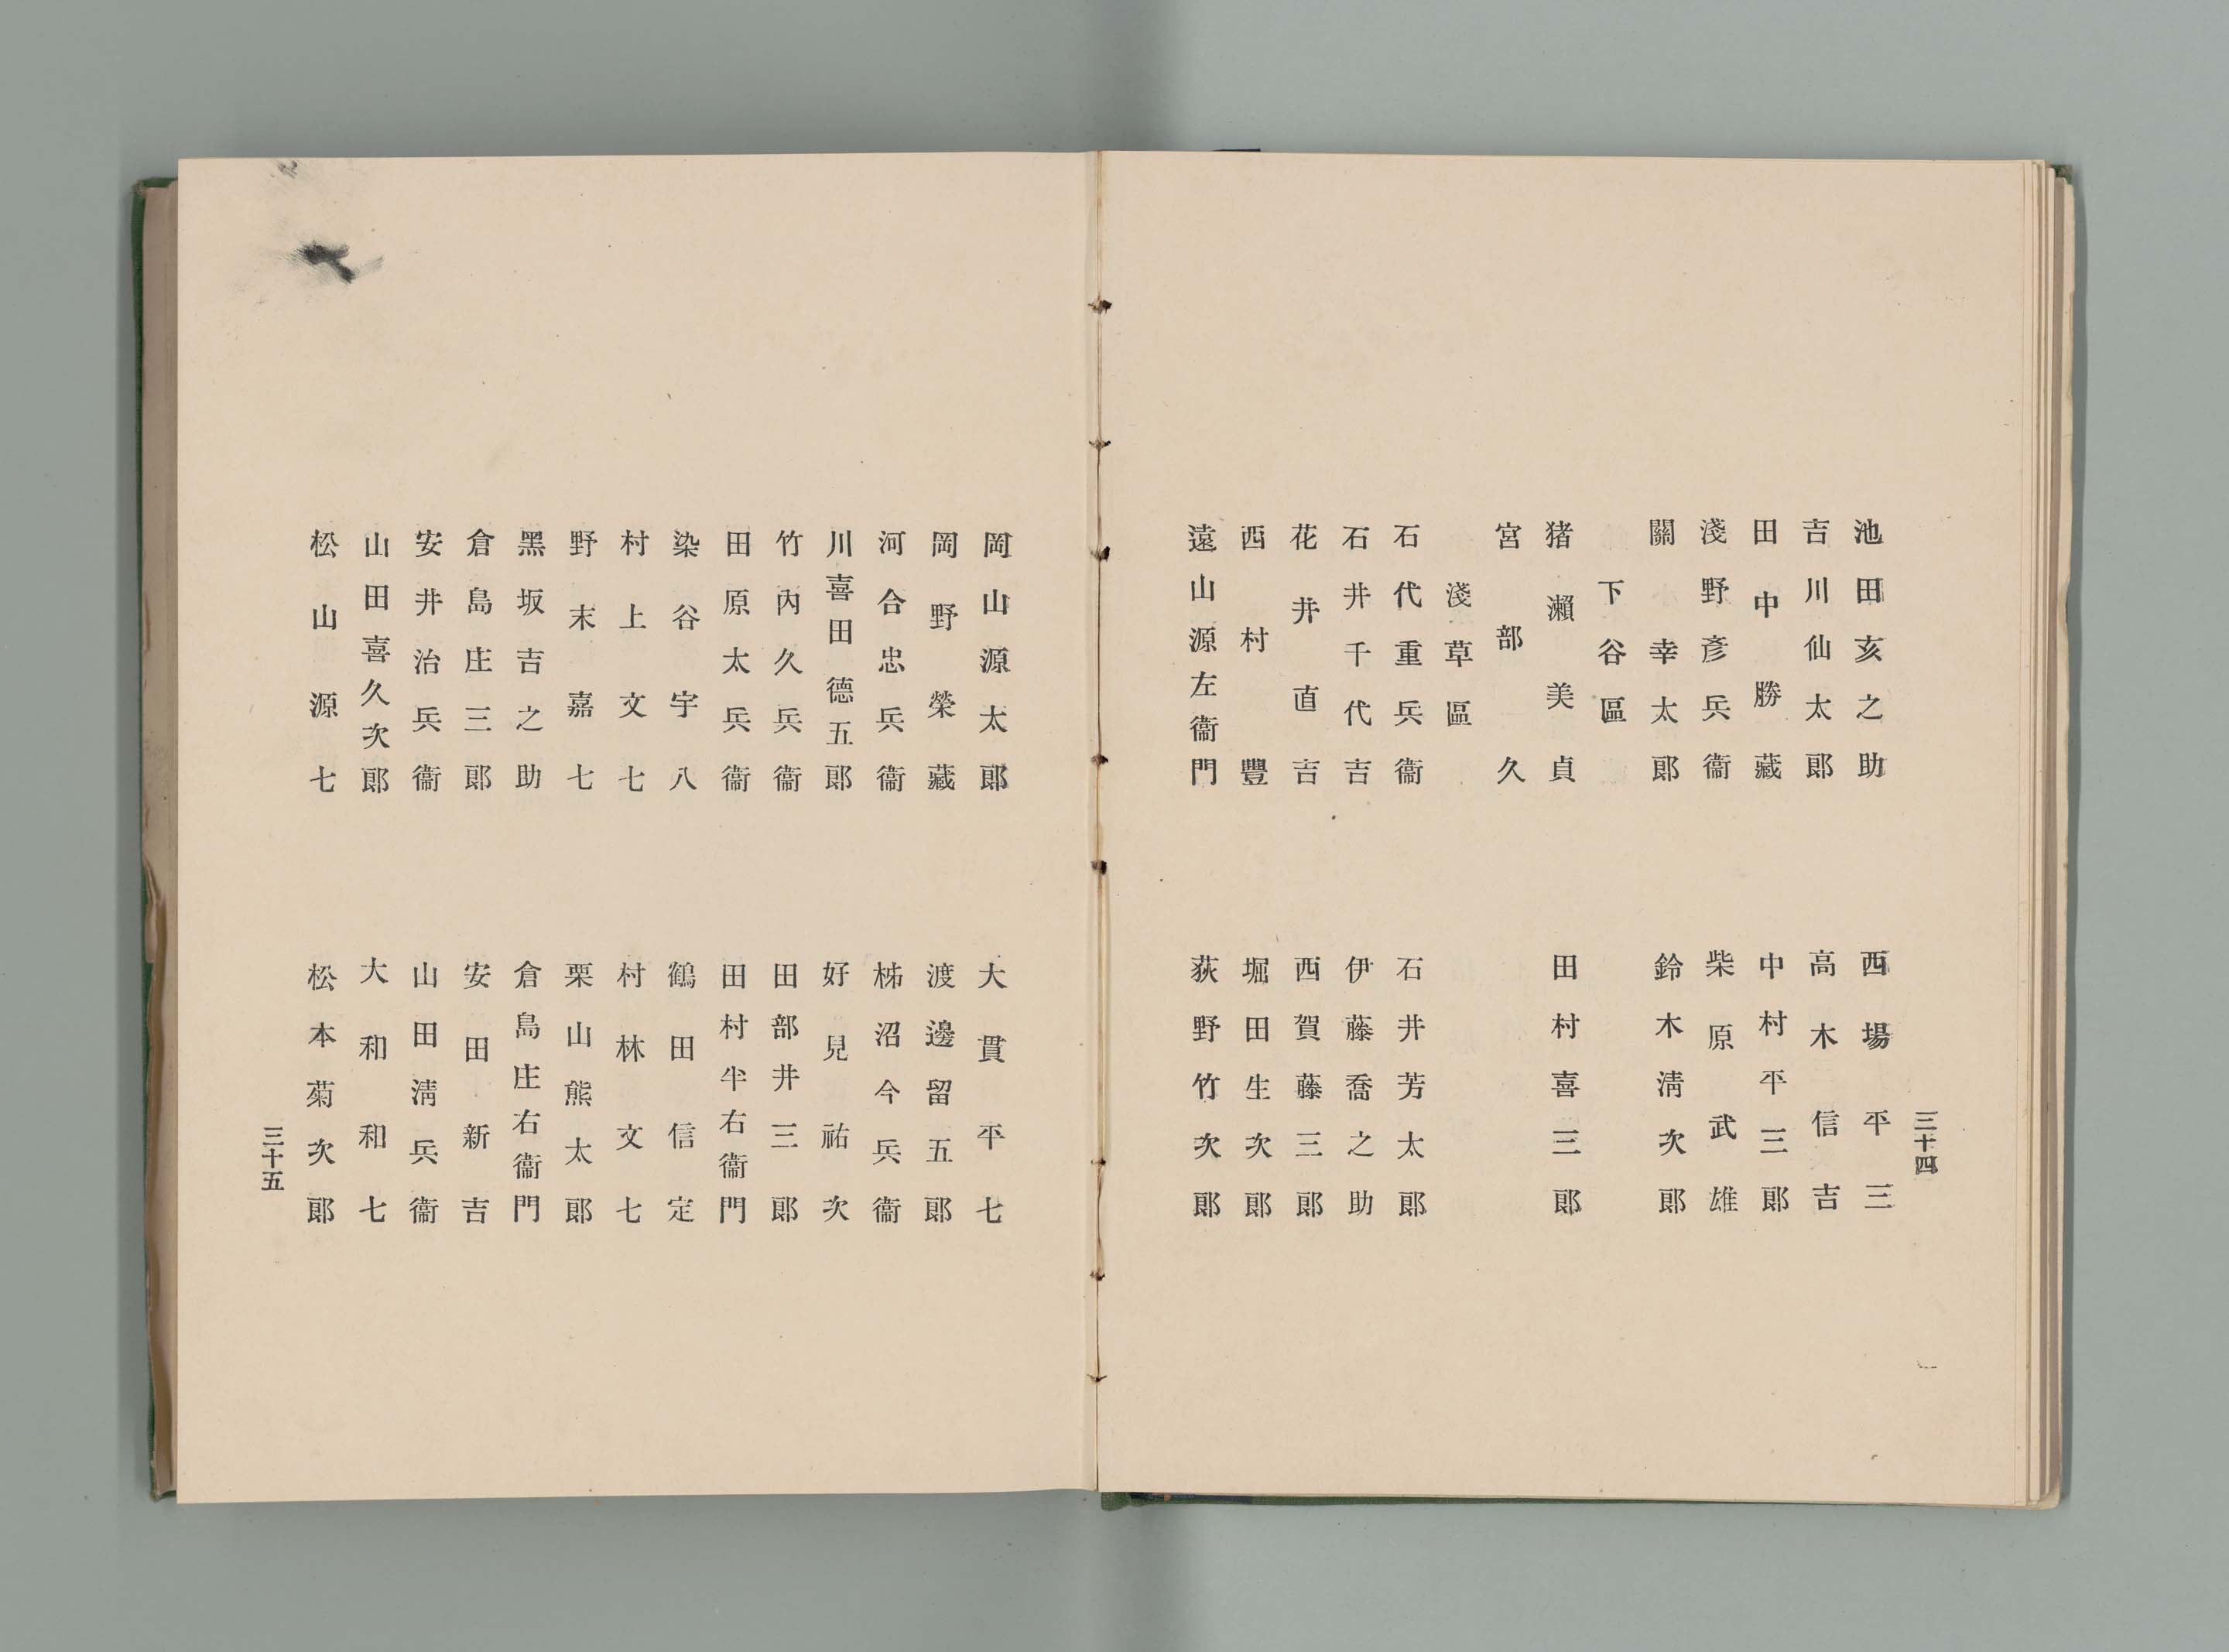 池田亥之助
西場平三
吉川仙太郎
高木信吉
田中勝藏
中村平三郎
淺野彥兵衞
柴原武雄
關幸太郎
鈴木淸次郎
下谷區
猪瀨美貞
田村喜三郎
宮部久
淺草區
石代重兵衞
石井芳太郎
石井千代吉
伊藤喬之助
花井直吉
西賀藤三郎
西村豐
堀田生次郎
遠山源左衞門
荻野竹次郎
三十四
岡山源太郎
大貫平七
岡野榮藏
渡邊留五郎
河合忠兵衞
柹沼今兵衞
川喜田德五郎
好見祐次
竹內久兵衞
田部井三郎
田原太兵衞
田村半右衞門
染谷宇八
鶴田信定
村上文七
村林文七
野末嘉七
栗山熊太郎
黑坂吉之助
倉島庄右衞門
倉島庄三郎
安田新吉
安井治兵衞
山田淸兵衞
山田喜久次郎
大和和七
松山源七
松本菊次郎
三十五